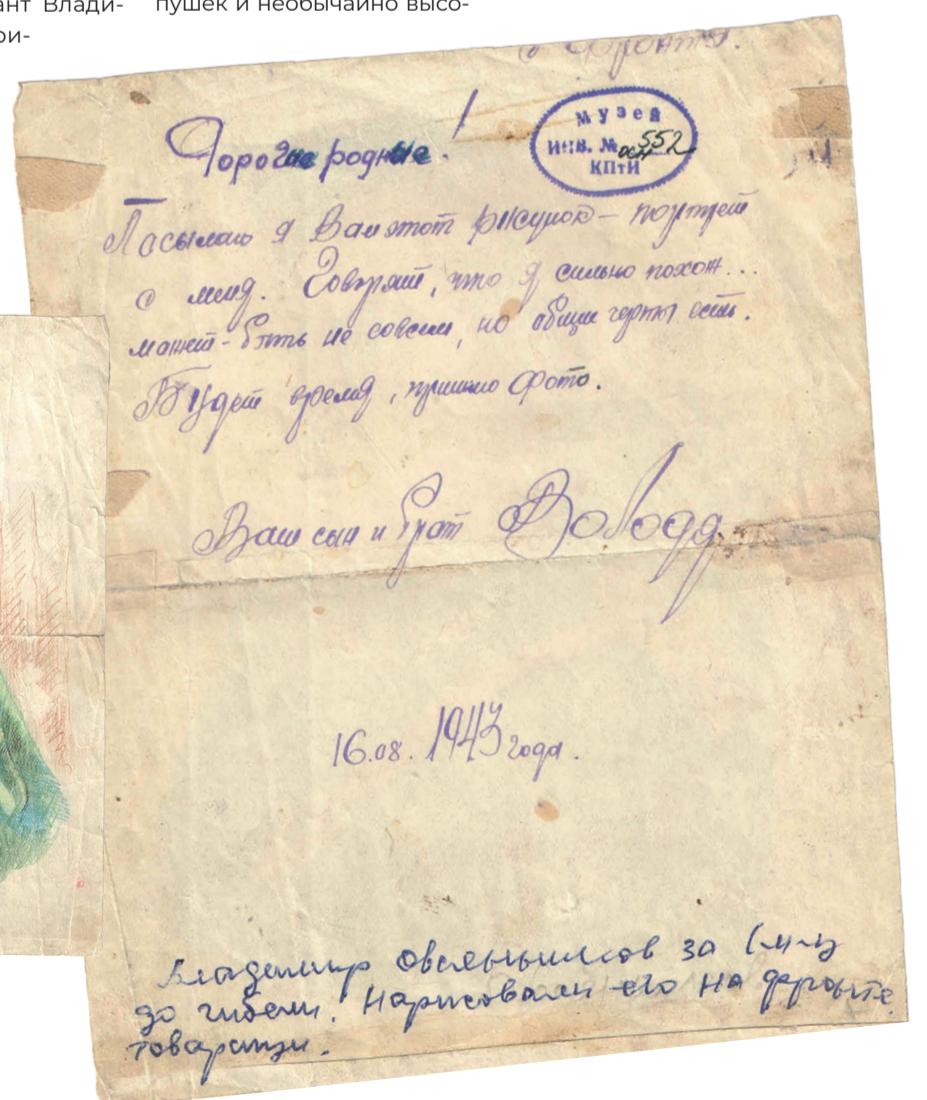 ант Влади-
ри-
пушек и необычайно высо-
с фронта.
Дорогие родные!
Музей
Инв. № осн 552
КПТИ
Посылаю я Вам этот рисунок – портрет
с меня. Говорят, что я сильно похож...
может-быть не совсем, но общие черты есть.
Будет время, пришлю фото.
Ваш сын и брат Володя
16.08.1943 года.
Владимир Овсянников за
до гибели. Нарисовали его на фронте
товарищи.